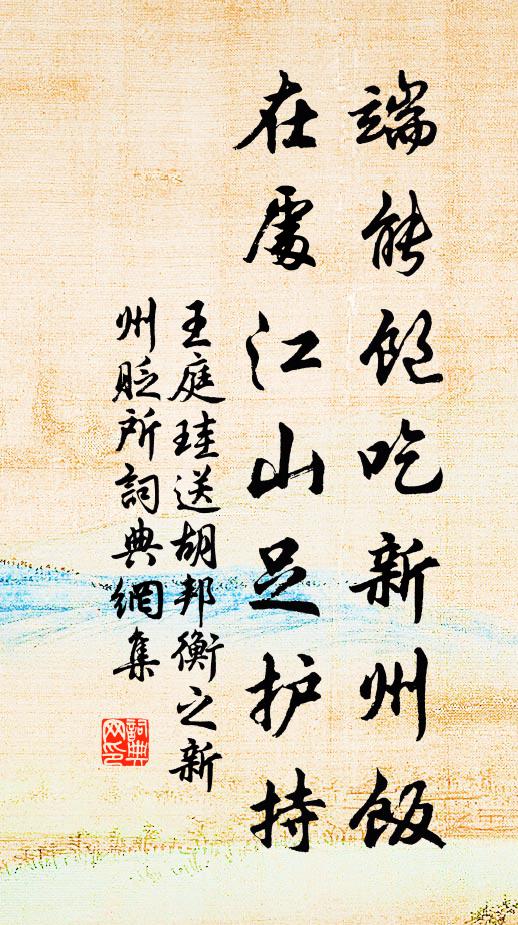 端能飽吃新州飯
在處江山足护持
王庭珪送胡邦衡之新
州貶所詞典網集
詞典
网印